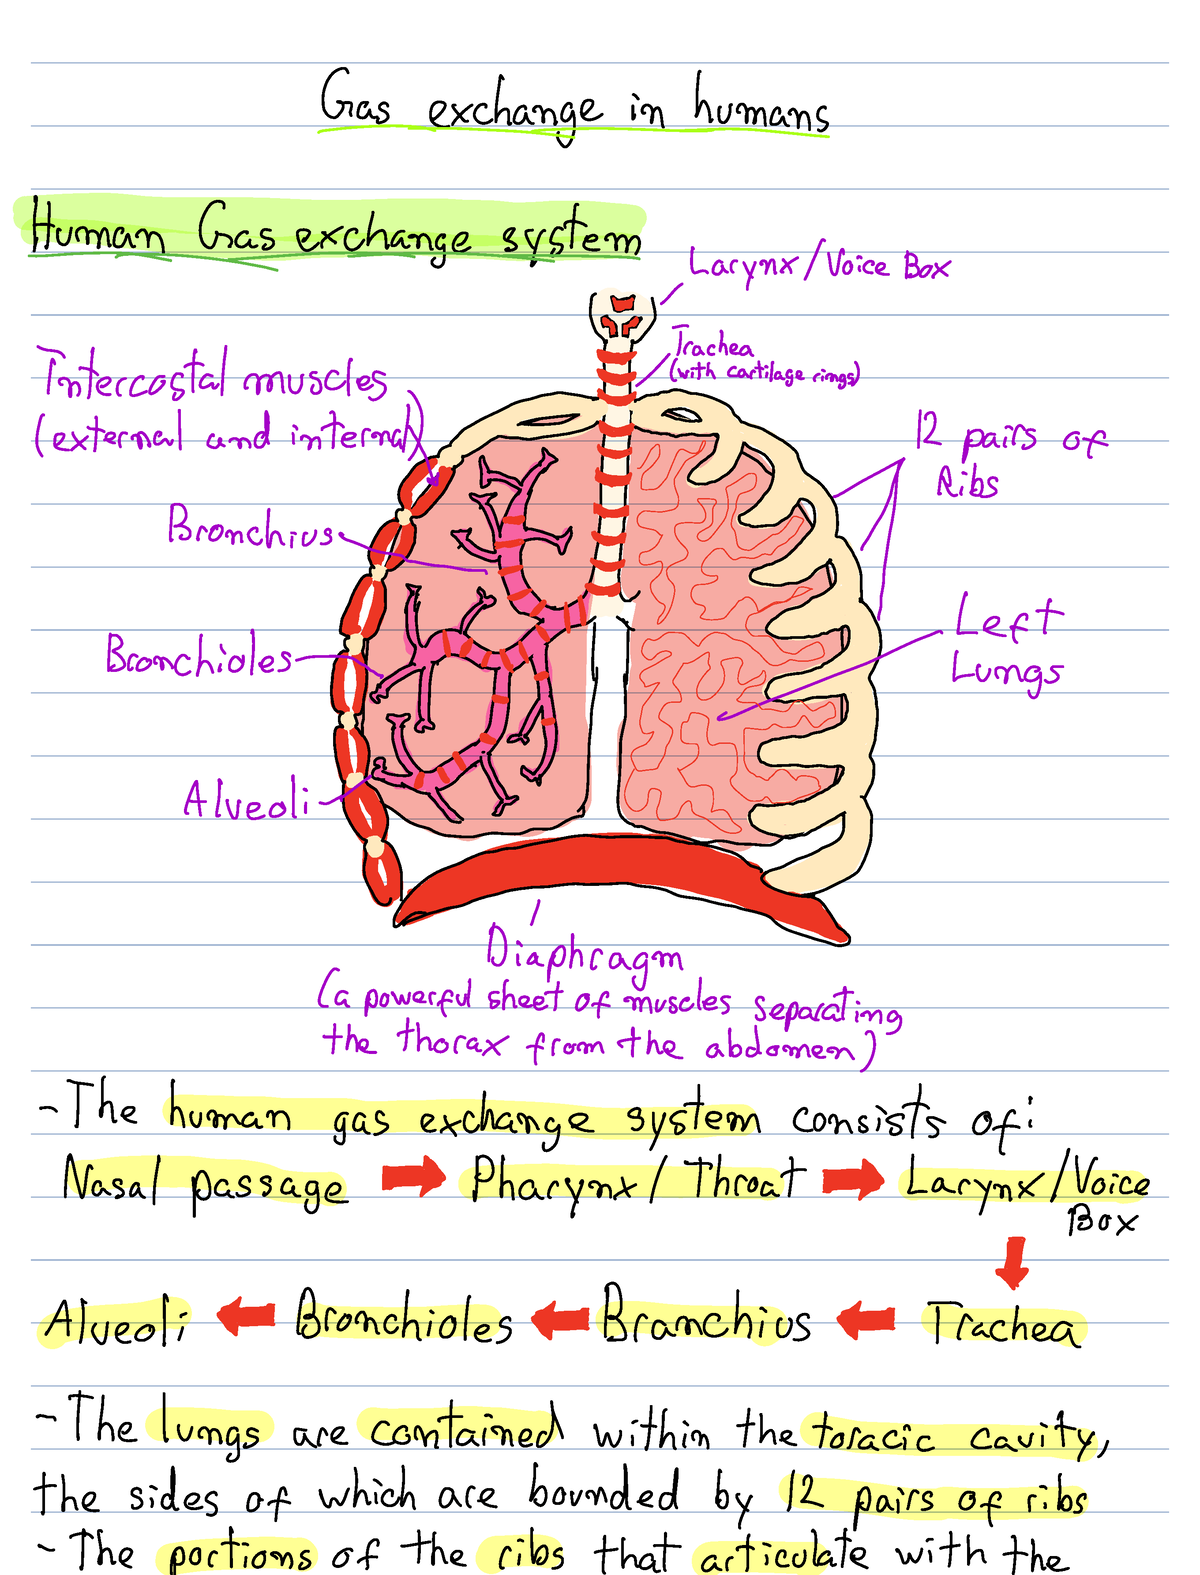 Gas exchange in humans
Human Gas exchange system
Larynx/Voice Box
Trachea
(with cartilage rings)
Intercostal muscles
(external and internal)
12 pairs of
Ribs
Bronchius
Left
Lungs
Bronchioles
Alveoli
Diaphragm
(a powerful sheet of muscles separating
the thorax from the abdomen)
-The human gas exchange system consists of:
Nasal passage Pharynx/Throat Larynx/Voice
Box
Alveoli Bronchioles Branchius Trachea
-The lungs are contained within the toracic cavity,
the sides of which are bounded by 12 pairs of ribs
-The portions of the ribs that articulate with the